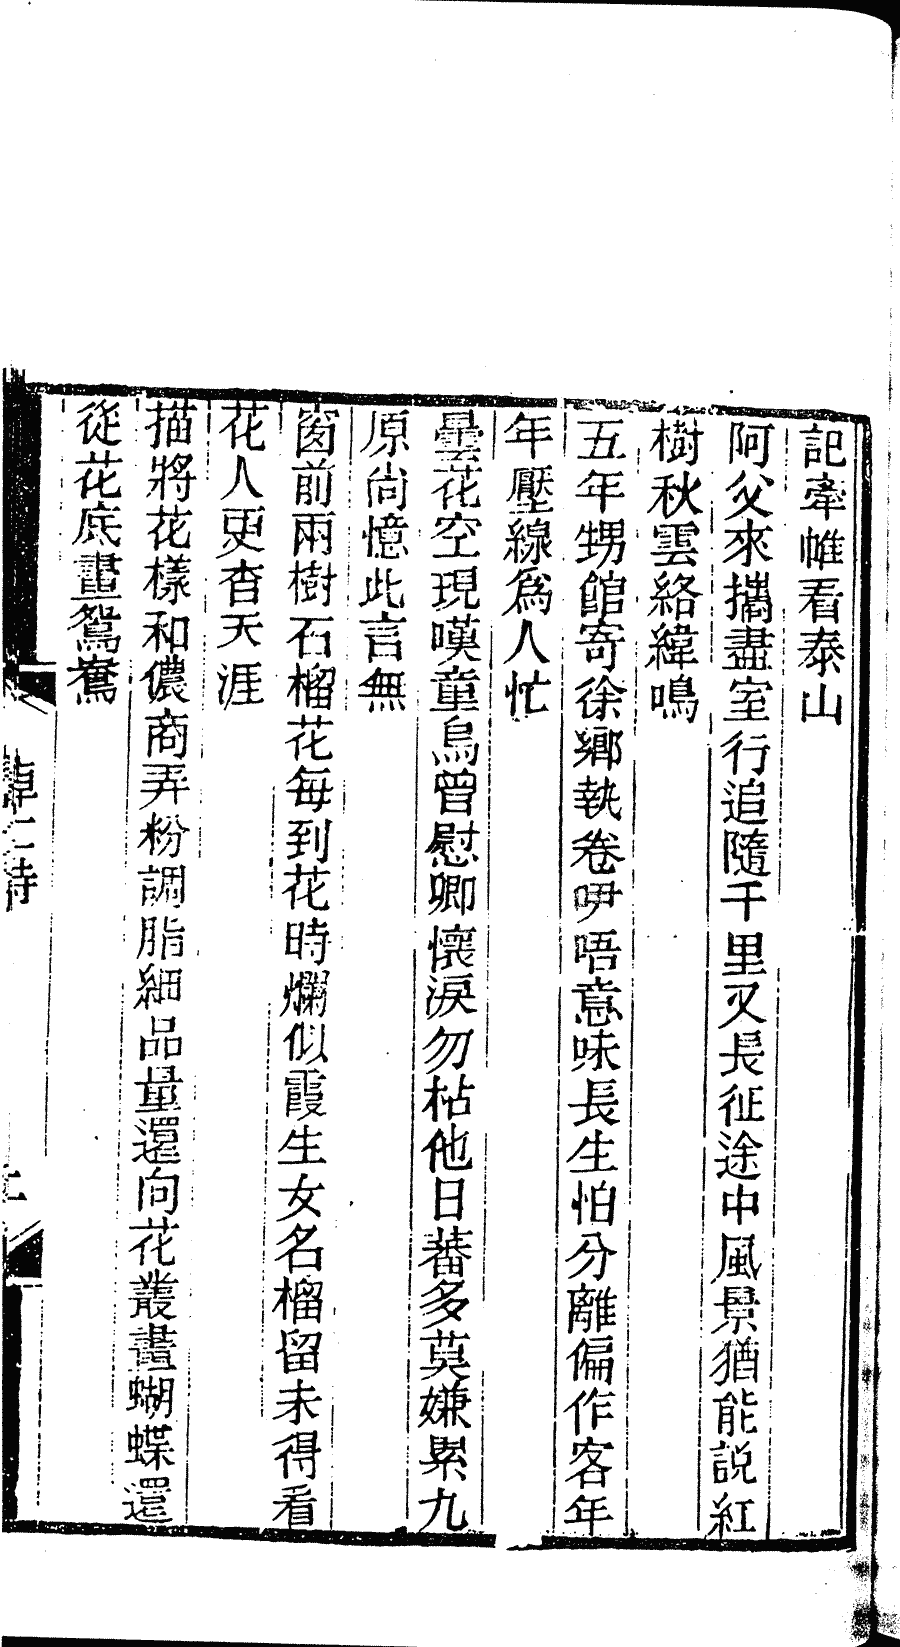 記牽帷看泰山
阿父來攜盡室行追隨千里又長征途中風景猶能說紅
樹秋雲絡緯鳴
五年甥館寄徐鄉執卷咿唔意味長生怕分離偏作客年
年壓線爲人忙
曇花空現嘆童烏曾慰卿懷淚勿枯他日蕃多莫嫌累九
原尙憶此言無
窗前兩樹石榴花每到花時爛似霞生女名榴留未得看
花人更杳天涯
描將花樣和儂商弄粉調脂細品量還向花叢畫蝴蝶還
從花底畫鴛鴦